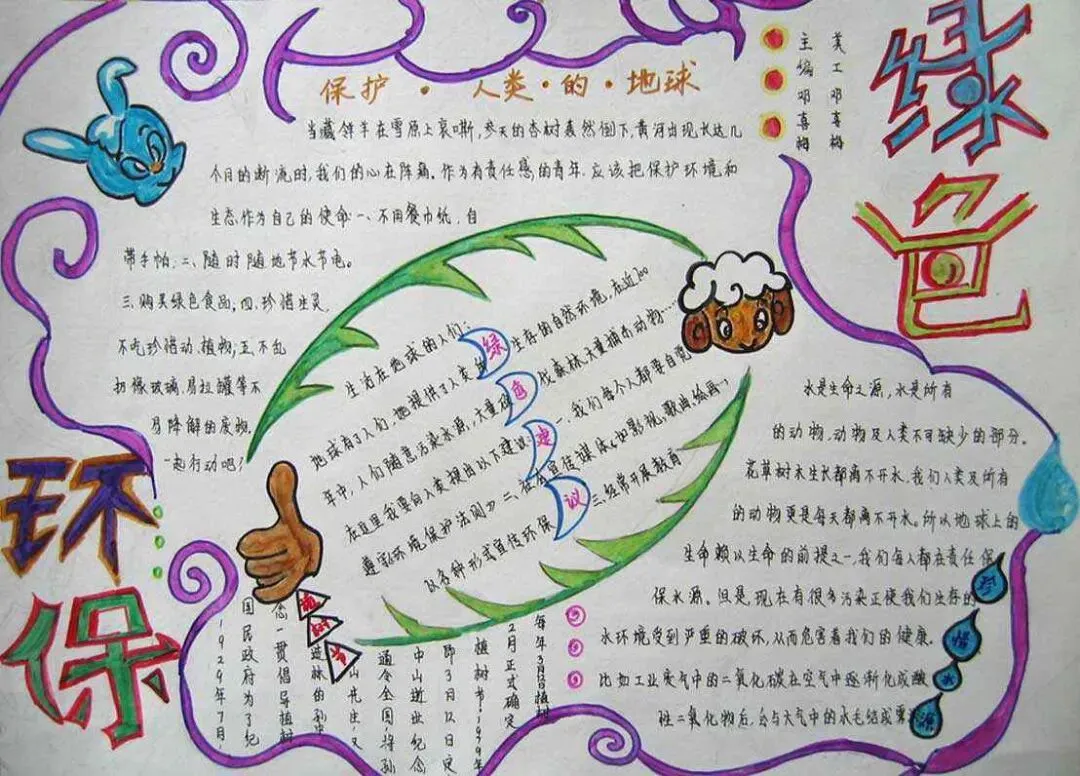 绿色
环保
主编 邓喜梅
美工 邓喜梅
保护·人类·的·地球
当藏羚羊在雪原上哀嘶,参天的杏树轰然倒下,黄河出现长达几
个月的断流时,我们的心在阵痛。作为有责任感的青年.应该把保护环境和
生态作为自己的使命.一、不用餐巾纸,自
带手帕.二、随时随地节水节电。
三.购买绿色食品;四.珍惜生灵,
不吃珍惜动、植物;五,不乱
扔橡玻璃,易拉罐等不
易降解的废物.
一起行动吧!
绿色建议
生活在地球的人们:
地球有了人们,她提供了人类 生存的自然环境,在近100
年中,人们随意污染水源,大量 伐森林,大量捕杀动物……
在这里我要向人类提出以下建 一.我们每个人都要自觉
遵守环境保护法则 二.在有宣传媒体,如影视、歌曲、绘画…
以各种形式宣传环保 三.经常开展教育
水是生命之源,水是所有
的动物,动物及人类不可缺少的部分。
花草树木生长都离不开水,我们人类及所有
的动物更是每天都离不开水。所以地球上的
生命赖以生命的前提之一,我们每人都在责任保
保水源。但是,现在有很多污染正使我们生存的
水环境受到严重的破坏,从而危害着我们的健康.
比如工业废气中的二氧化碳在空气中逐渐化成酸
性二氧化物后,会与大气中的水毛结成
珍惜水源
植树节
每年3月12日植树
2月正式确定
植树节.1979年
即3月12日定
中山逝世纪念
通令全国将孙
山先生,又
进林的孙中
念一贯倡导植树
国民政府为了纪
1929年7月,